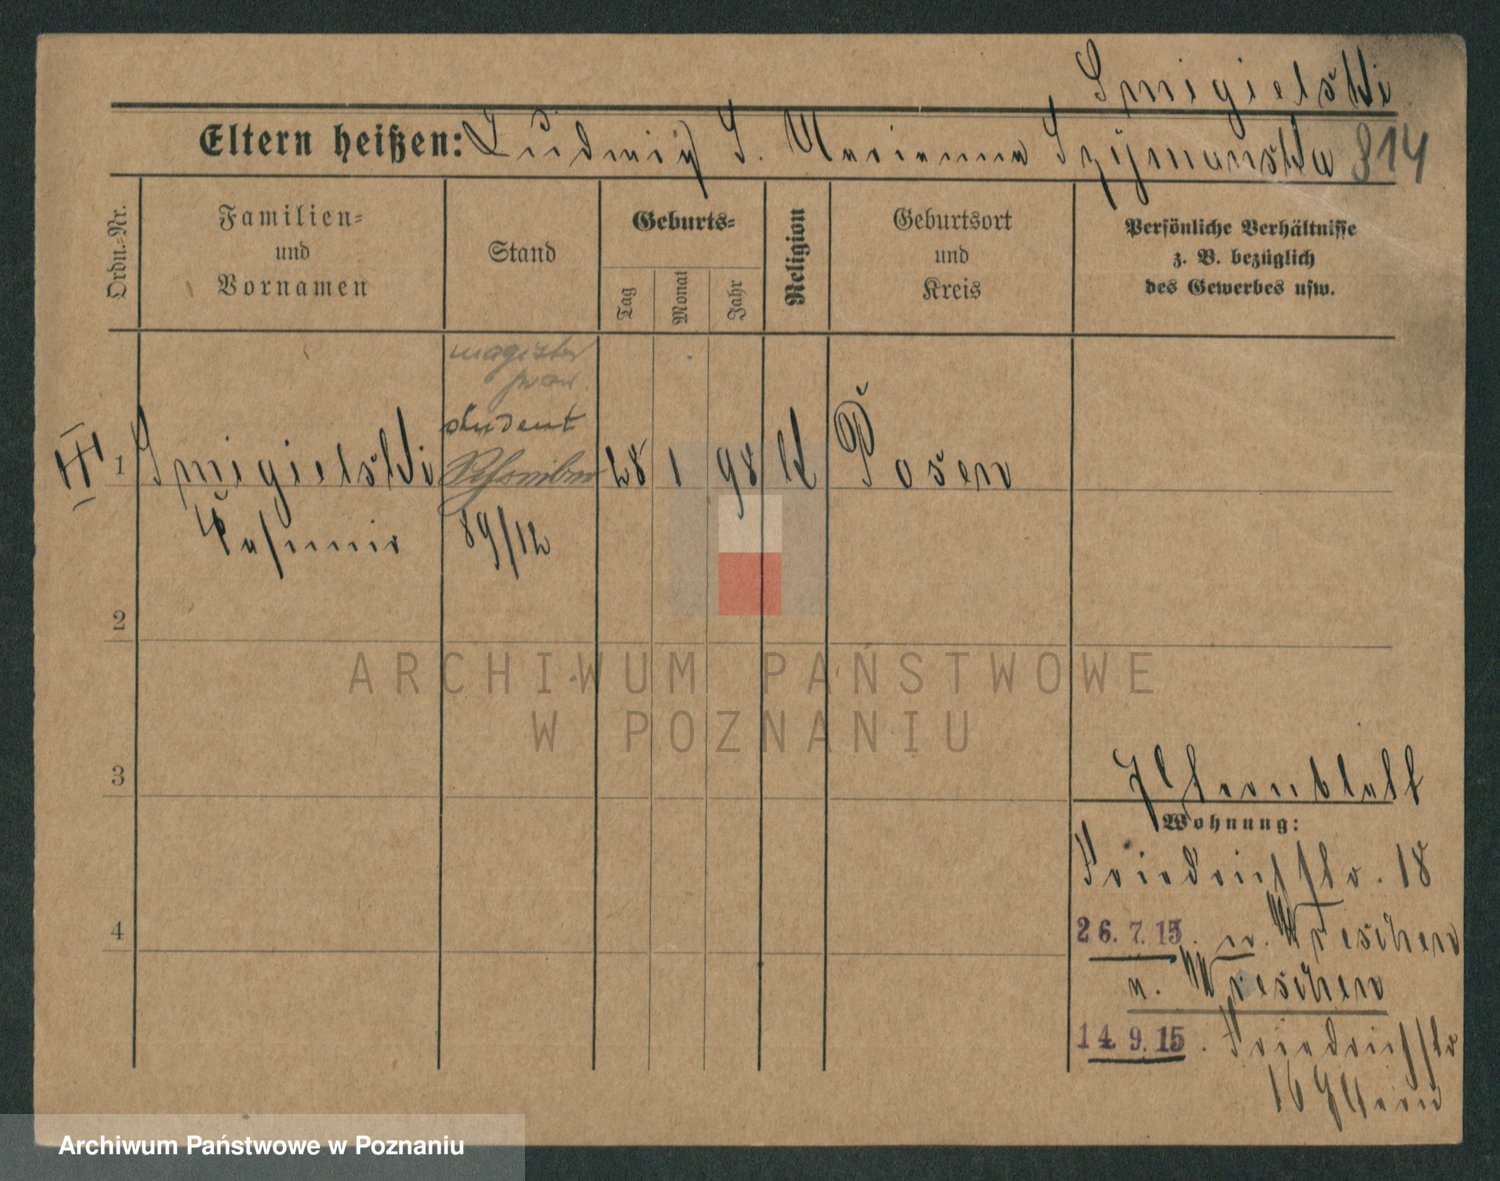 Smigielski
Eltern heißen: Ludwig S. Marianna Szymanska 814
Ordn.=Nr.
Familien=
und
Vornamen
Stand
Geburts=
Tag
Monat
Jahr
Religion
Geburtsort
und
Kreis
Persönliche Verhältnisse
z. B. bezüglich
des Gewerbes usw.
magister
praw.
student
III 1 Smigielski 28 1 98 k Posen
Kasimir 89/12
2
3
4
Wohnung:
Friedrichstr. 18
26.7.15. n. Wreschen
n. Wreschen
14.9.15. Friedrichstr
16
ARCHIWUM PAŃSTWOWE
W POZNANIU
Archiwum Państwowe w Poznaniu